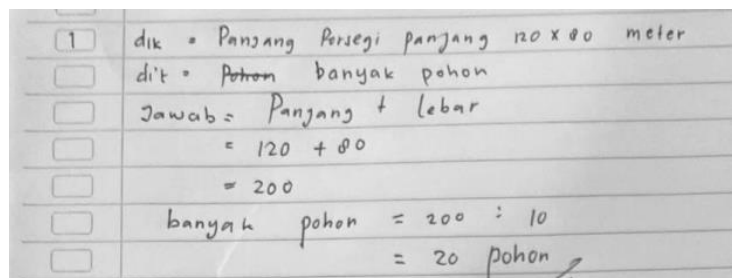 1 dik = Panjang Persegi panjang 120 x 80 meter
di't = Pohon banyak pohon
Jawab = Panjang + lebar
= 120 + 80
= 200
banyak pohon = 200 : 10
= 20 pohon